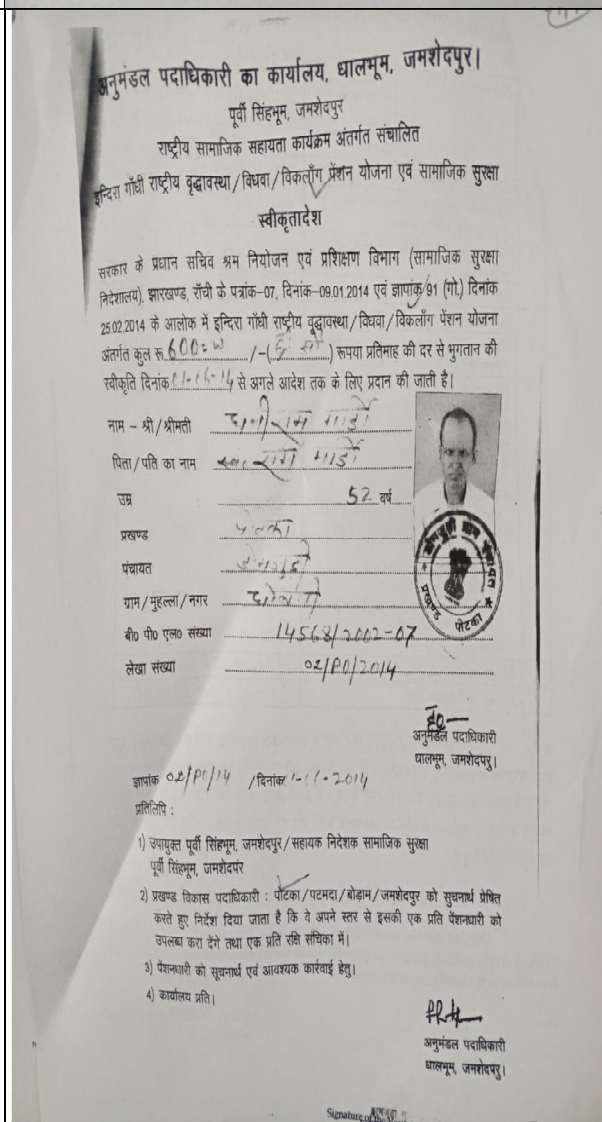 अनुमंडल पदाधिकारी का कार्यालय, धालभूम, जमशेदपुर।
पूर्वी सिंहभूम, जमशेदपुर
राष्ट्रीय सामाजिक सहायता कार्यक्रम अंतर्गत संचालित
इन्दिरा गाँधी राष्ट्रीय वृद्धावस्था/विधवा/विकलाँग पेंशन योजना एवं सामाजिक सुरक्षा
स्वीकृतादेश
सरकार के प्रधान सचिव श्रम नियोजन एवं प्रशिक्षण विभाग (सामाजिक सुरक्षा
निदेशालय), झारखण्ड, राँची के पत्रांक-07, दिनांक-09.01.2014 एवं ज्ञापांक/91 (गो.) दिनांक
25.02.2014 के आलोक में इन्दिरा गाँधी राष्ट्रीय वृद्धावस्था/विधवा/विकलाँग पेंशन योजना
अंतर्गत कुल रू 600 /-( ) रूपया प्रतिमाह की दर से भुगतान की
स्वीकृति दिनांक से अगले आदेश तक के लिए प्रदान की जाती है।
नाम - श्री/श्रीमती
पिता/पति का नाम
उम्र 52 वर्ष
प्रखण्ड पोटका
पंचायत
ग्राम/मुहल्ला/नगर
बी0 पी0 एल0 संख्या 14568/2002-07
लेखा संख्या 02/PO/2014
प्रखण्ड पोटका
अनुमंडल पदाधिकारी
धालभूम, जमशेदपुर।
ज्ञापांक 02/PO/14 /दिनांक 2014
प्रतिलिपि :
1) उपायुक्त पूर्वी सिंहभूम, जमशेदपुर/सहायक निदेशक सामाजिक सुरक्षा
पूर्वी सिंहभूम, जमशेदपुर
2) प्रखण्ड विकास पदाधिकारी : पोटका/पटमदा/बोड़ाम/जमशेदपुर को सुचनार्थ प्रेषित
करते हुए निर्देश दिया जाता है कि वे अपने स्तर से इसकी एक प्रति पेंशनधारी को
उपलब्ध करा देंगे तथा एक प्रति रक्षि संचिका में।
3) पेंशनधारी को सूचनार्थ एवं आवश्यक कार्रवाई हेतु।
4) कार्यालय प्रति।
अनुमंडल पदाधिकारी
धालभूम, जमशेदपुर।
Signature